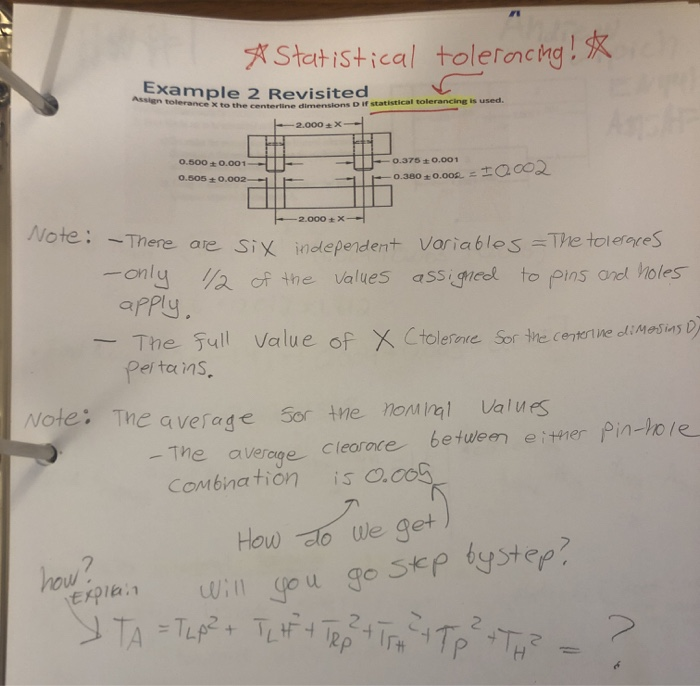 ☆ Statistical tolerancing! ☆
Example 2 Revisited
Assign tolerance X to the centerline dimensions D if statistical tolerancing is used.
2.000 ± X
0.500 ± 0.001
0.375 ± 0.001
0.505 ± 0.002
0.380 ± 0.002 = ±0.002
2.000 ± X
Note: - There are six independent variables = The tolerances
- only 1/2 of the values assigned to pins and holes
apply.
- The full value of X (tolerance for the centerline dimensions D)
pertains.
Note: The average for the nominal values
- The average clearance between either pin-hole
combination is 0.005
How do we get
how?
Explain
Will you go step by step?
T_A = T_LP² + T_LH² + T_RP² + T_rH² + T_P² + T_H² = ?